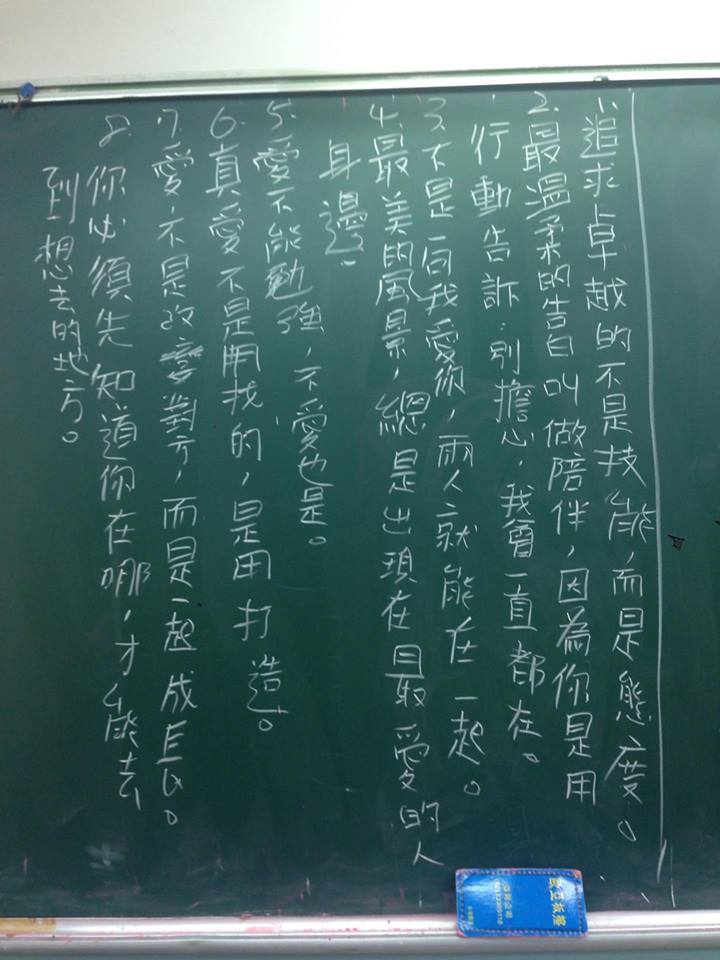 1.追求卓越的不是技能，而是態度。
2.最溫柔的告白叫做陪伴，因為你是用
行動告訴.別擔心，我會一直都在。
3.不是一句我愛你，兩人就能在一起。
4.最美的風景，總是出現在最愛的人
身邊。
5.愛不能勉強，不愛也是。
6.真愛不是用找的，是用打造。
7.愛，不是改變對方，而是一起成長。
8.你必須先知道你在哪，才能去
到想去的地方。